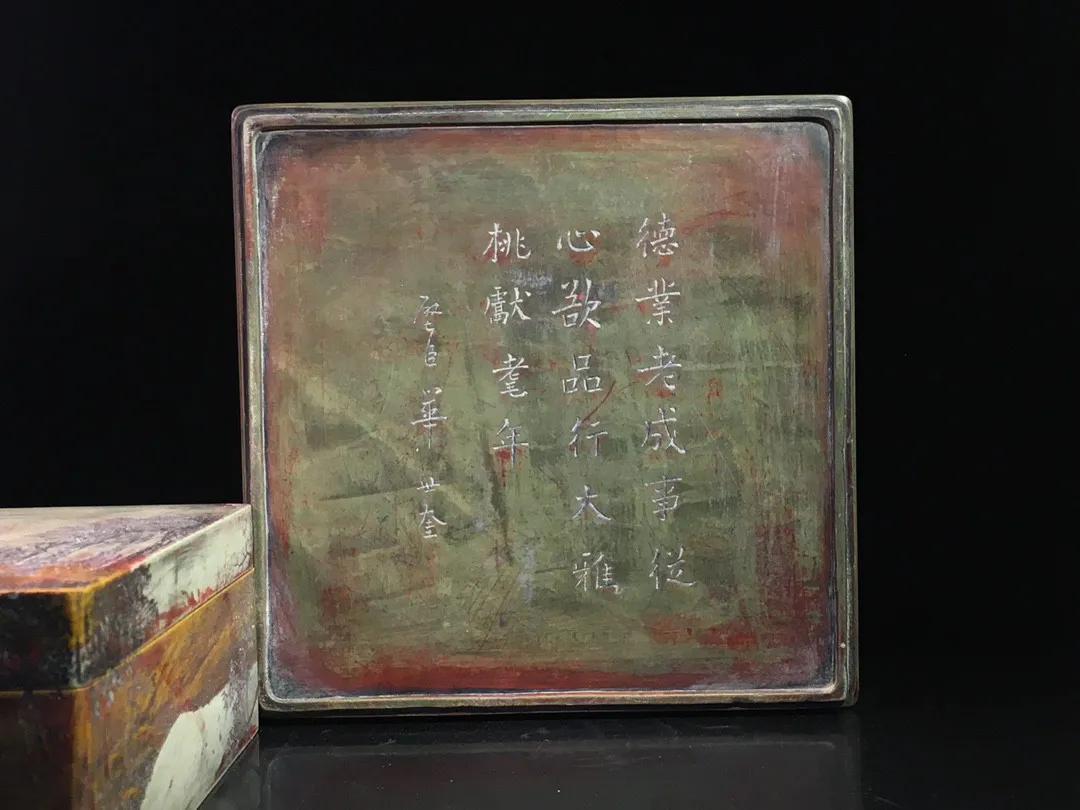 德業老成事從
心欲品行大雅
桃獻耄年
華世奎